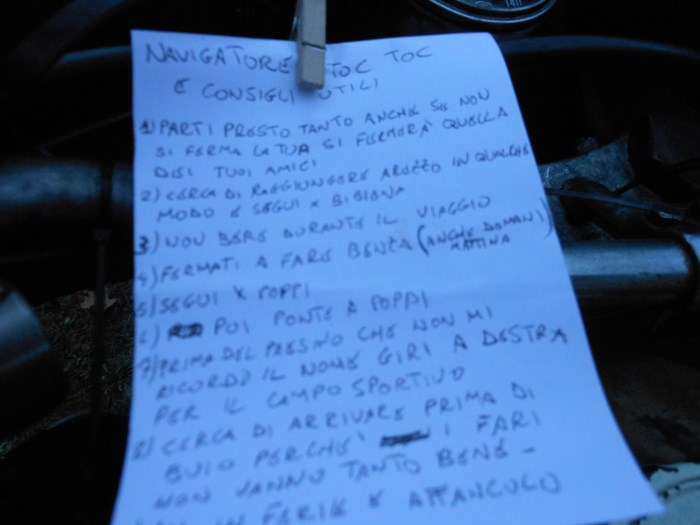 NAVIGATORE TOC TOC
E CONSIGLI UTILI
1) PARTI PRESTO TANTO ANCHE SE NON
SI FERMA LA TUA SI FERMERÀ QUELLA
DEI TUOI AMICI
2) CERCA DI RAGGIUNGERE AREZZO IN QUALCHE
MODO E SEGUI X BIBIENA
3) NON BERE DURANTE IL VIAGGIO
4) FERMATI A FARE BENZA (ANCHE DOMANI
MATTINA)
5) SEGUI X POPPI
6) POI PONTE A POPPI
7) PRIMA DEL PAESINO CHE NON MI
RICORDO IL NOME GIRI A DESTRA
PER IL CAMPO SPORTIVO
8) CERCA DI ARRIVARE PRIMA DI
BUIO PERCHE' I FARI
NON VANNO TANTO BENE -
IN FERIE E